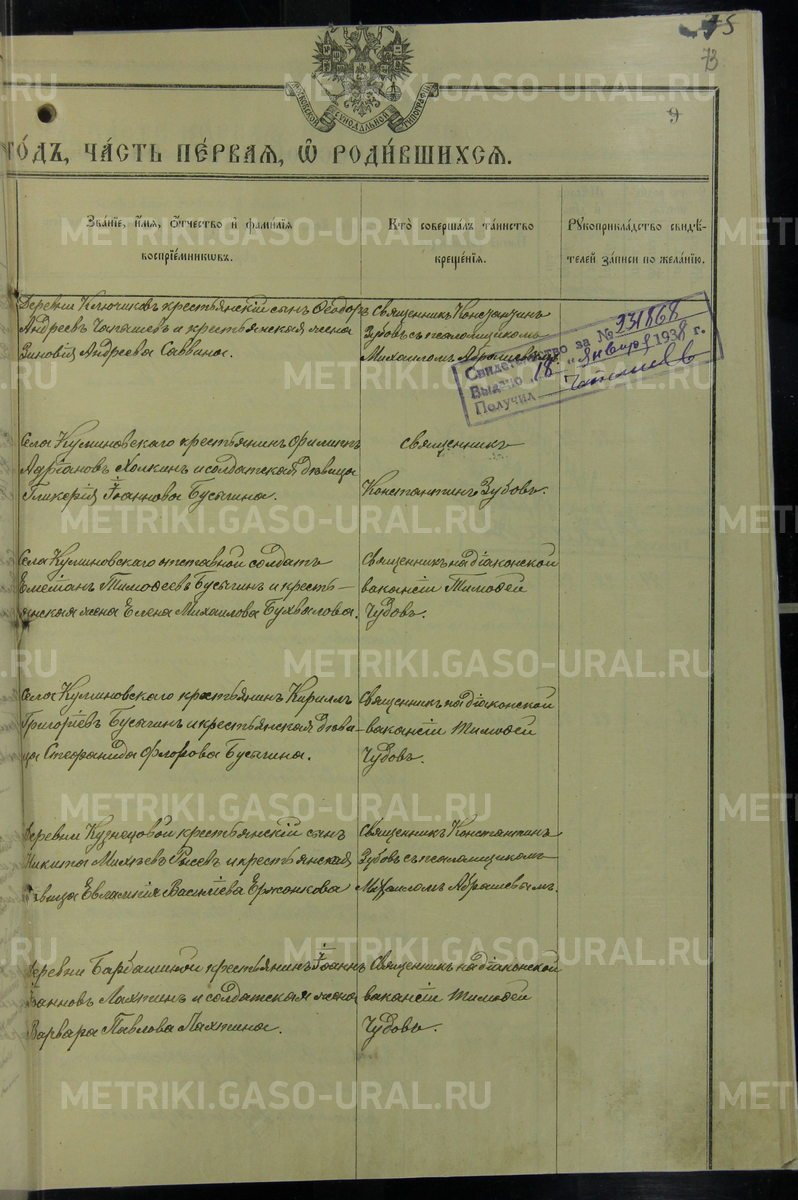 75
73
9
МОСКОВСКОЙ СѴНОДАЛЬНОЙ ТИПОГРАФІИ
го́дъ, ча́сть пе́рвая, ѡ҆ роди́вшихся.
Зва́нїе, и҆́мя, ѻ҆́тчество и҆ фами́лїя
воспрїе́мникѡвъ.
Кто̀ соверша́лъ та́инство
креще́нїя.
Рꙋкоприкла́дство свидѣ́-
телей за́писи по жела́нїю.
Деревни Ключиковъ крестьянскій сынъ Ѳеодоръ
Андреевъ Чапышевъ и крестьянская жена
Зиновія Андреева Саввина.
Священникъ Констанзин
Зубовъ съ псаломщикомъ
Михаиломъ Абрашевымъ
Свидетельство за № 331868
Выдано „18„ января 1938 г.
Получил
Села Куминовскаго крестьянинъ Филиппъ
Адріановъ Холкинъ и солдатская дѣвица
Гликерія Іоаннова Бусыгина.
священникъ
Константинъ Зубовъ.
Села Куминовскаго отставной солдатъ
Емеліанъ Тимоѳеевъ Бусыгинъ и кресть-
янская жена Елена Михаилова Бухвалова.
Священникъ на діаконской
вакансіи Тимоѳей
Чудовъ.
Села Куминовскаго крестьянинъ Кириллъ
Григоріевъ Бусыгинъ и крестьянская дѣви-
ца Стефанида Флорова Бусыгина.
Священникъ на діаконской
вакансіи Тимоѳей
Чудовъ.
Деревни Кузнецовой крестьянскій сынъ
Никита Михѣевъ Рысевъ и крестьянская
дѣвица Евлампія Василіева Ержонкова
Священникъ Константинъ
Зубовъ съ псаломщикомъ
Михаиломъ Абрашевымъ.
Деревни Барбашиной крестьянинъ Іоаннъ
Іоанновъ Лахтинъ и солдатская жена
Варвара Павлова Лахтина.
Священникъ на діаконской
вакансіи Тимоѳей
Чудовъ.
METRIKI.GASO-URAL.RU